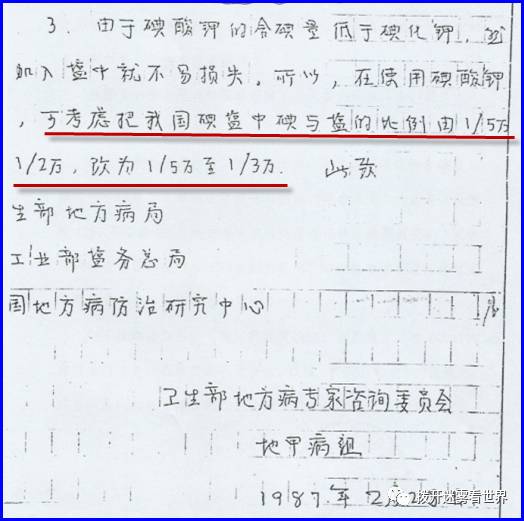 3. 由于碘酸钾的含碘量低于碘化钾,
加入盐中就不易损失。所以,在使用碘酸钾
,可考虑把我国碘盐中碘与盐的比例由1/5万
1/2万,改为1/5万至1/3万.  此致
生部地方病局
工业部盐务总局
国地方病防治研究中心
卫生部地方病专家咨询委员会
地甲病组
1987年2月2
拨开迷雾看世界